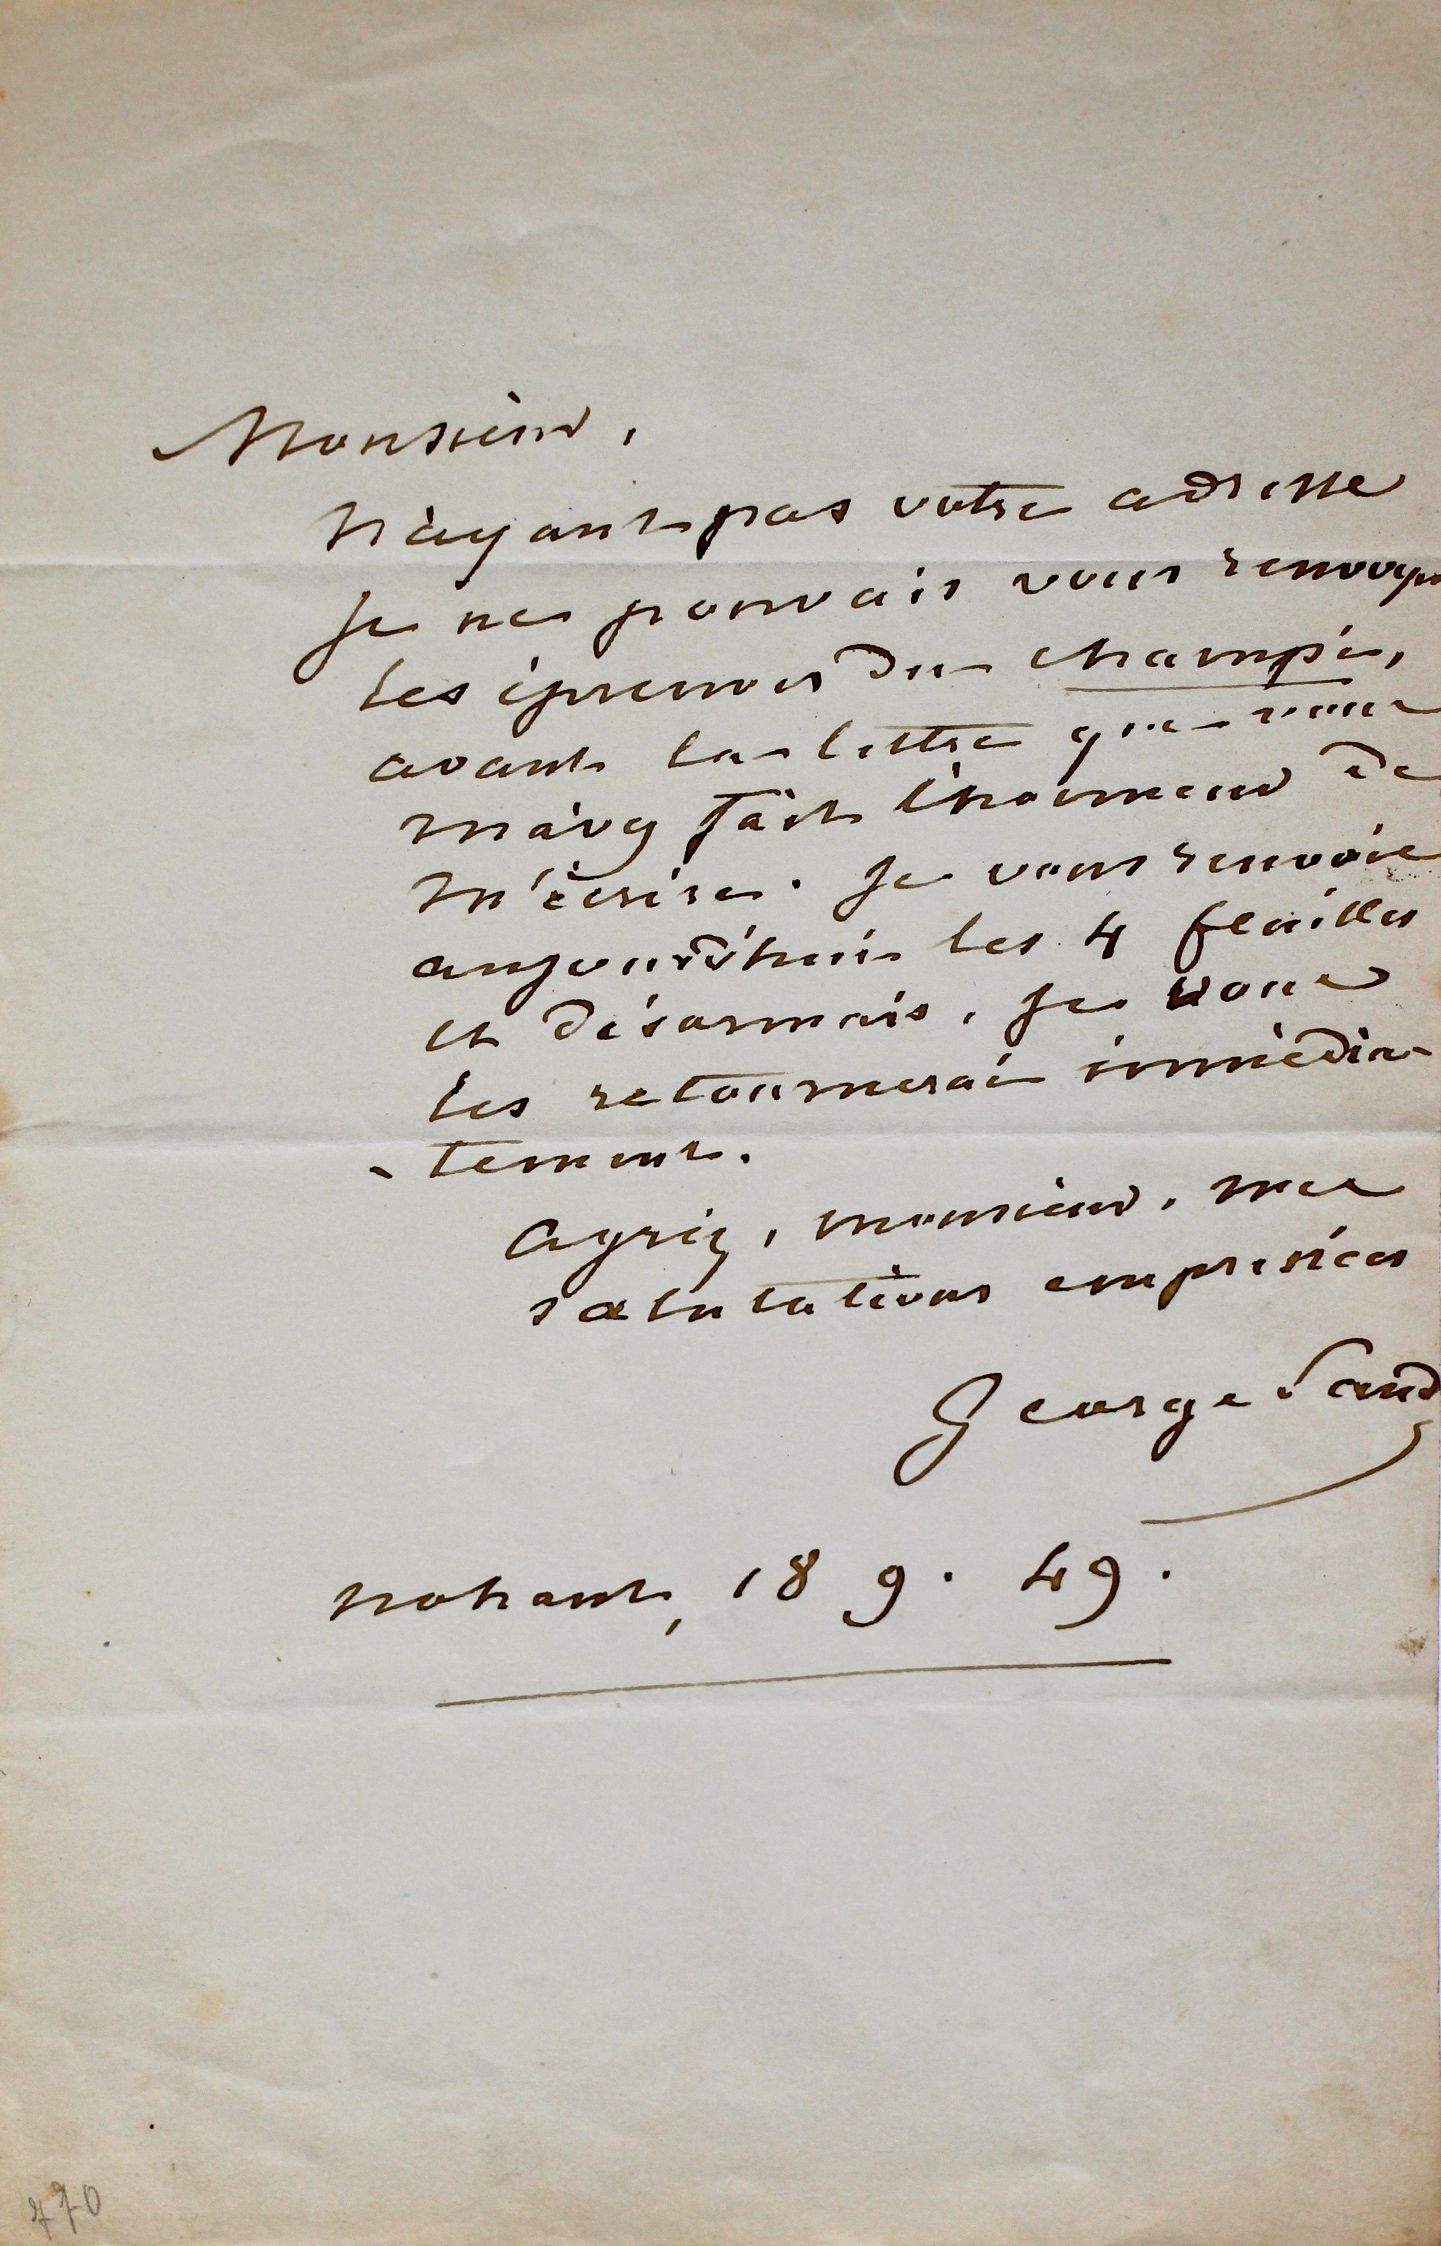 Monsieur,
N'ayant pas votre adresse
je ne pouvais vous renvoyer
les épreuves du champi,
avant la lettre que vous
m'avez fait l'honneur de
m'écrire. Je vous renvoie
aujourd'hui les 4 feuilles
et désormais, je vous
les retournerai immédia-
-tement.
Agréez, monsieur, mes
salutations empressées
George Sand
Nohant, 18 9. 49.
770